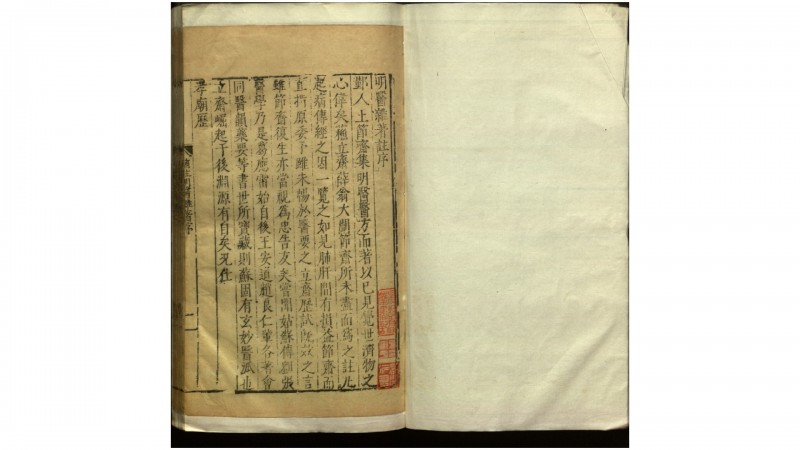 明醫雜著註序
鄞人王節齋集明醫醫方而著以己見覺世濟物之
心偉矣薇立齋薛翁大闡節齋所未盡而為之註凡
起病傳經之因一覽之如見肺肝間有損益節齋而
直折原委予雖未暢於醫要之立齋歷試既效之言
雖節齋復生亦當視為忠告友矣嘗聞姑蘇傳劉張
醫學乃是葛應雷始自後王安道趙良仁輩各著會
同醫韻藥要等書世所寶藏則蘇固有玄妙醫派也
立齋崛起于後淵源有自矣況在
孝廟歷